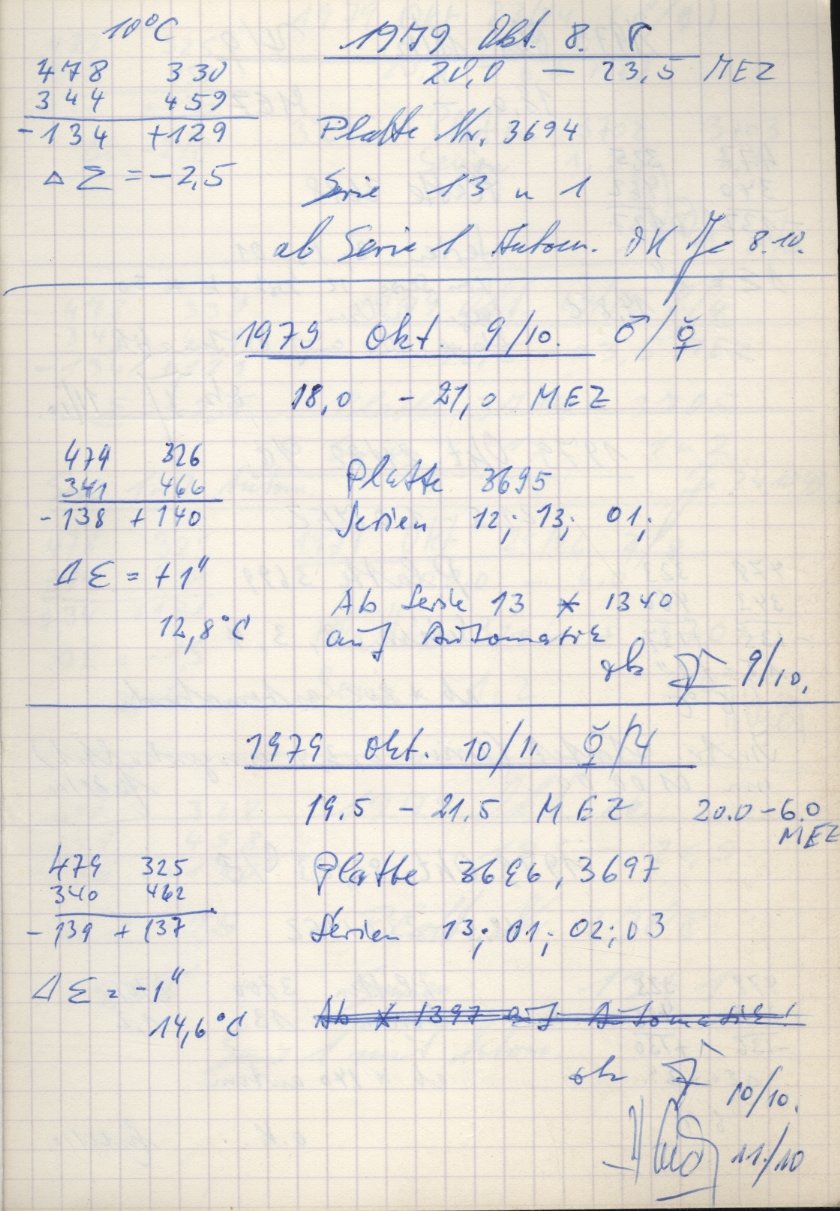 10°C
1979 Okt. 8.
478 330
20,0 — 23,5 MEZ
344 459
-134 +129
Platte Nr. 3694
Δ Σ = -2,5
Serie 13 u 1
ab Serie 1 Autom. 8.10.
1979 Okt. 9/10. ♂/☿
18,0 - 21,0 MEZ
479 326
341 466
Platte 3695
-138 +140
Serien 12; 13; 01;
Δ Σ = +1"
Ab Serie 13 * 1340
12,8°C
auf Automatik
9/10.
1979 Okt. 10/11 ☿/♃
19.5 - 21.5 MEZ 20.0-6.0
MEZ
479 325
Platte 3696, 3697
340 462
-139 +137
Serien 13; 01; 02; 03
Δ Σ = -1"
14,6°C
Ab * 1397 auf Automatik!
10/10.
11/10